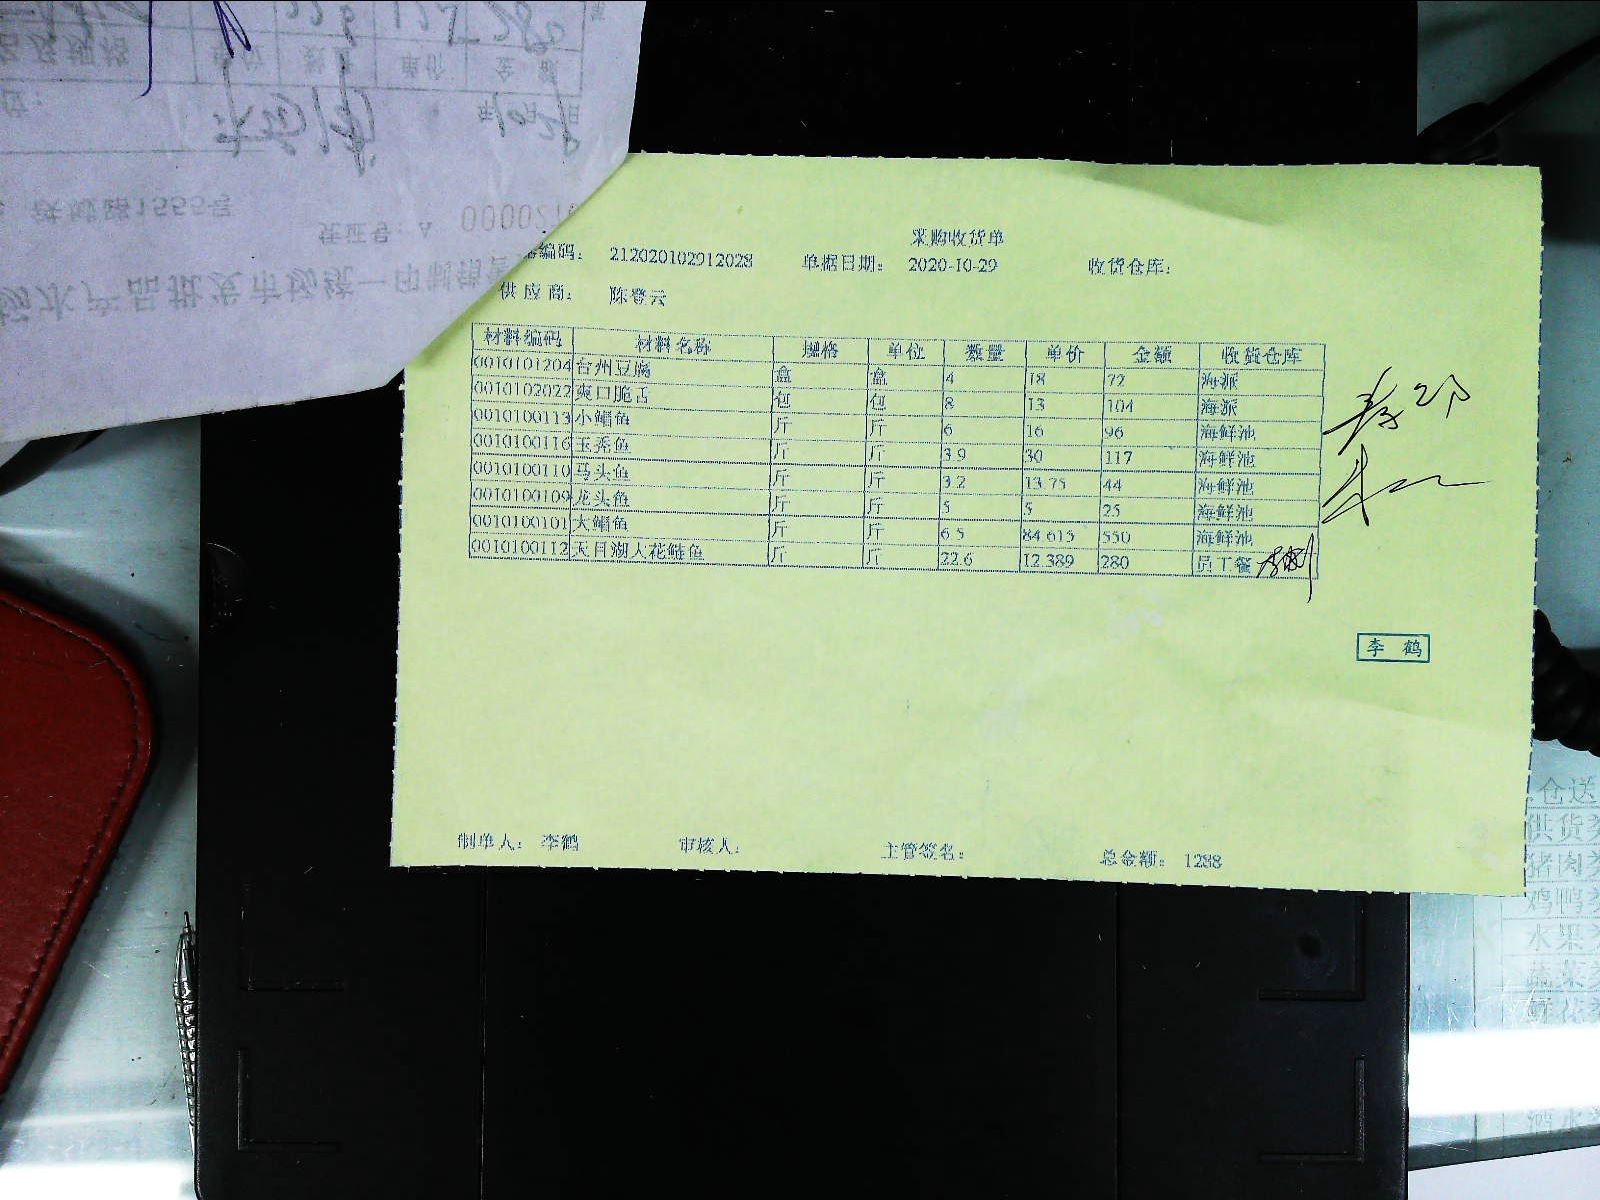 采购收货单
编码： 212020102912028 单据日期： 2020-10-29 收货仓库：
供应商： 陈登云
材料编码 材料名称 规格 单位 数量 单价 金额 收货仓库
0010101204 台州豆腐 盒 盒 4 18 72 海派
0010102022 爽口脆舌 包 包 8 13 104 海派
0010100113 小鲳鱼 斤 斤 6 16 96 海鲜池
0010100116 玉秃鱼 斤 斤 3.9 30 117 海鲜池
0010100110 马头鱼 斤 斤 3.2 13.75 44 海鲜池
0010100109 龙头鱼 斤 斤 5 5 25 海鲜池
0010100101 大鲳鱼 斤 斤 6.5 84.615 550 海鲜池
0010100112 天目湖人花鲢鱼 斤 斤 22.6 12.389 280 员工餐
李 鹤
制单人： 李鹤 审核人： 主管签名： 总金额： 1288
仓送
供货类
猪肉类
鸡鸭类
水果
蔬菜
鲜花类
酒水